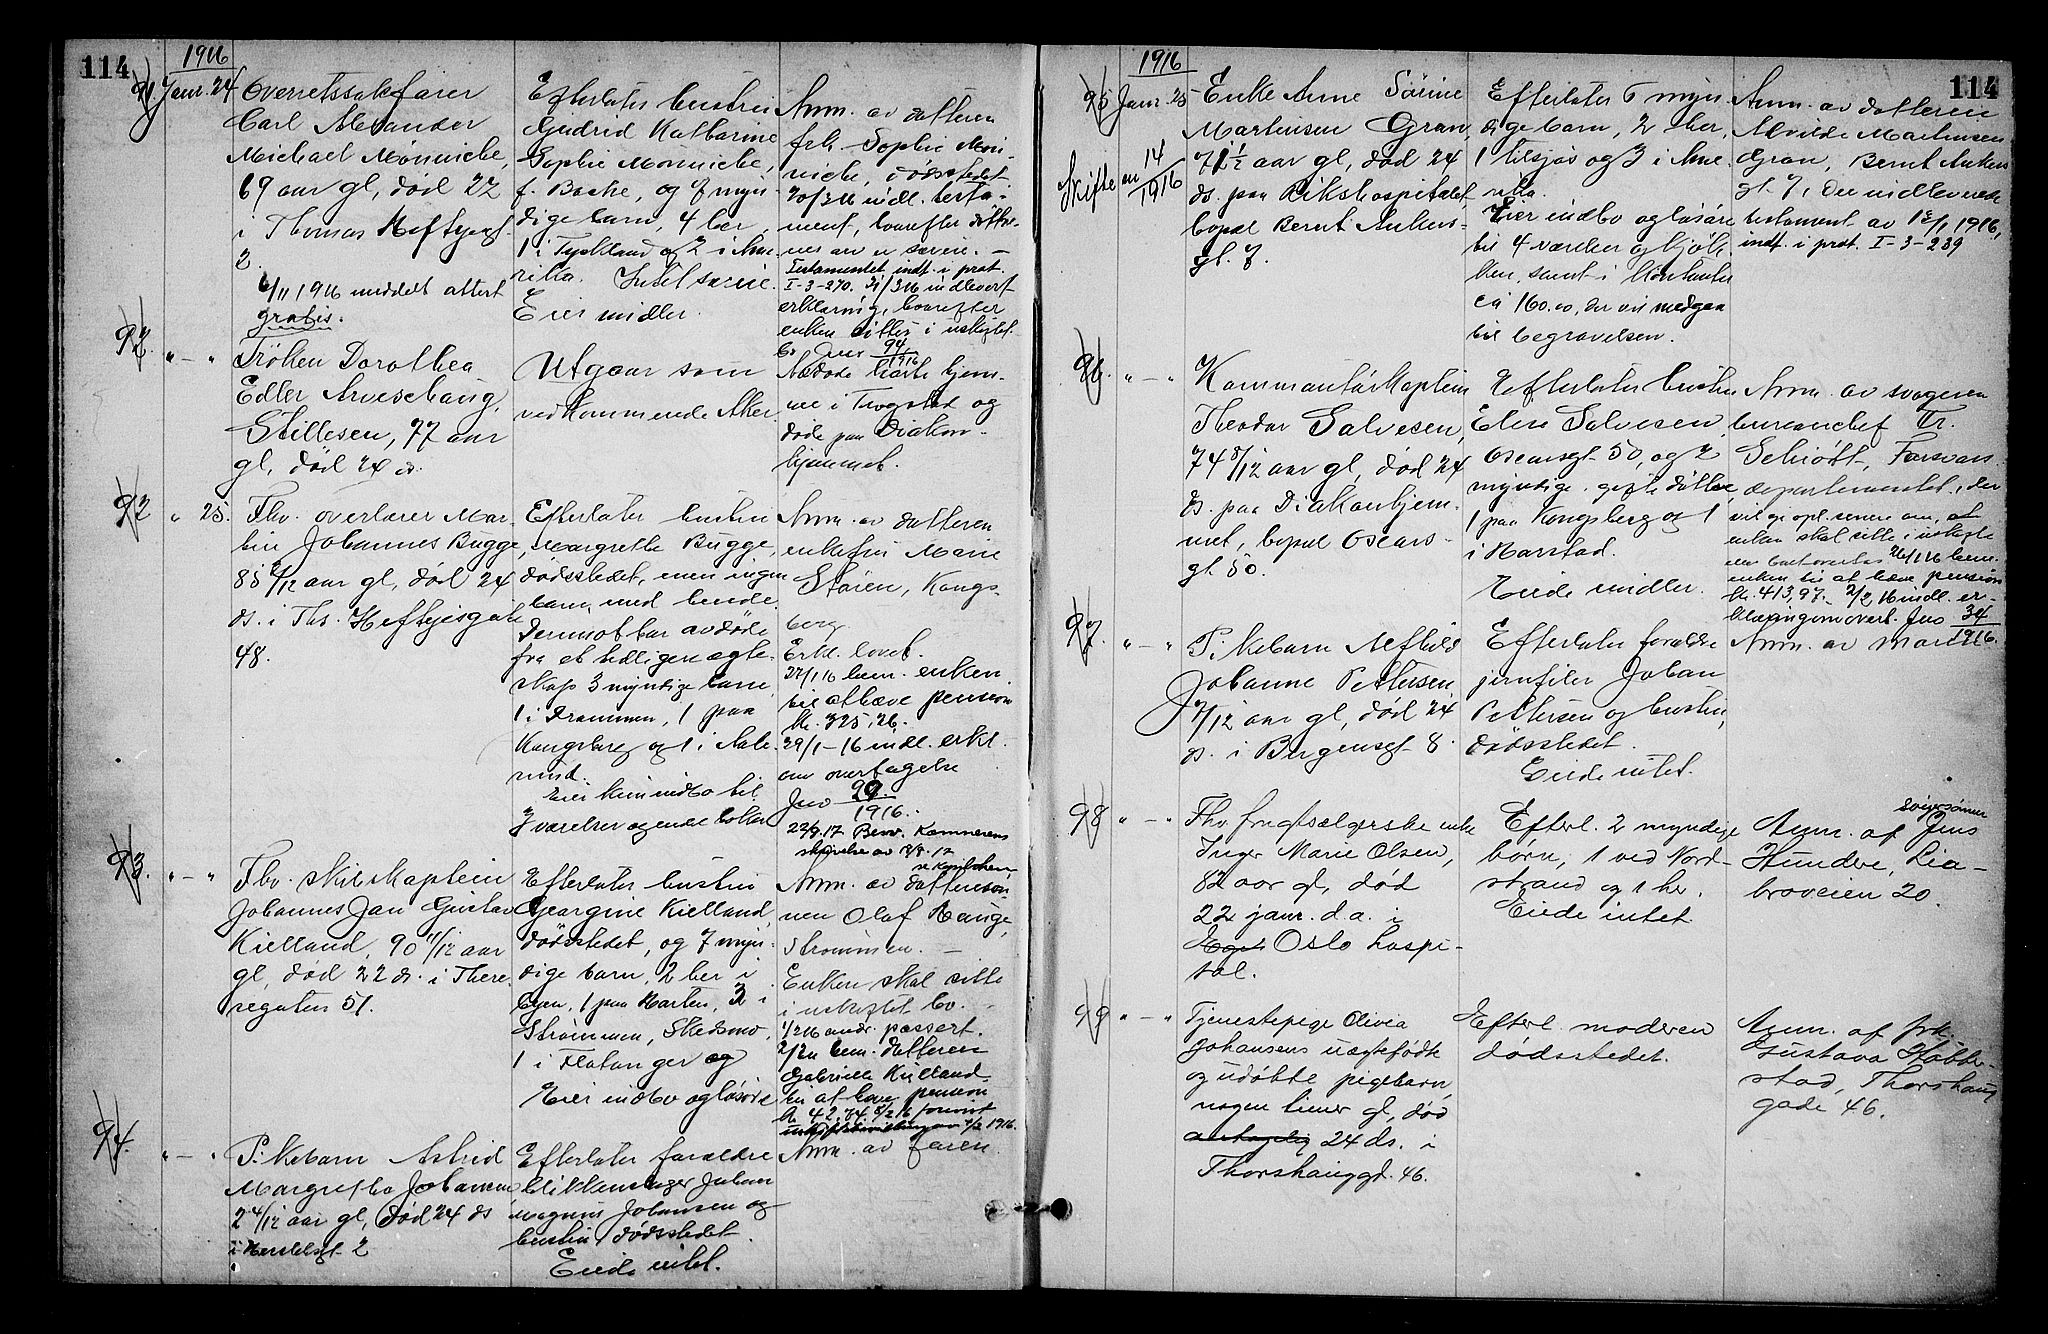 114
1916
91
Janr. 24
Overretssakfører
Carl Alexander
Michael Mønniche,
69 aar gl, død 22
i Thomas Heftyesgt
2.
6/11 1916 meddelt attest
gratis.
Efterlater hustru
Gudrid Katharine
Sophie Mønniche,
f. Backe, og 7 myn-
dige barn, 4 her,
1 i Tyskland og 2 i Ame
rika. Intet særeie.
Eier midler.
Anm. av datteren
frk. Sophie Møn-
niche, dødsstedet
20/3 16 indl. testa-
ment, hvorefter døtre-
nes arv er særeie. –
Testamentet indt. i prot.
I-3-270. 31/3 16 indlevert
erklæring, hvorefter
enken sitter i uskiftet
bo Jno 94/1916
92.
" — "
Frøken Dorothea
Edler
Stillesen, 77 aar
gl, død 20 ds.
Utgaar som
vedkommende Aker
Afdøde hadde hjem-
me i Trøgstad og
døde paa Diakon-
hjemmet.
92
" 25.
Fhv. overlærer Mar-
tin Johannes Bugge,
85 /12 aar gl, død 24
ds. i Ths. Heftyesgate
48.
Efterlater hustru
Margrethe Bugge,
dødsstedet, men ingen
barn med hende.
Derimot har avdøde
fra et tidligere egte-
skap 3 myndige barn,
1 i Drammen, 1 paa
Kongsberg og 1 i Aale-
sund.
Eier kun indbo til
3 værelser og endel bøker
Anm. av datteren
enkefru Marie
Støren, Kongs-
berg.
Erkl. lovet.
27/1 16 bem. enken
til at hæve pension
kr. 325,26.
29/1-16 indl. erkl.
om overtagelse
Jno 29./1916.
22/8.17 Besv. Kæmnerens
skrivelse av 18/8.17
93.
" — "
Fhv. skibskaptein
Johannes Jan Gustav
Kielland, 90 11/12 aar
gl, død 22 ds. i There-
segaten 51.
Efterlater hustru
Georgine Kielland,
dødsstedet, og 7 myn-
dige barn, 2 her i
byen, 1 paa Horten, 3 i
Strømmen, Skedsmo,
1 i Flatanger og
Eier indbo og løsøre
Anm. av dattersøn-
nen Olaf Hauge,
Strømmen. —
Enken skal sitte
i uskiftet bo.
1/2 16 andr. passert.
2/2 bem. datteren
Gabrielle Kielland
til at hæve pension
kr. 42,74. 5/2 16 forevist
uskiftebevilling av 4/2 1916.
94.
" — "
Pikebarn Astrid
Margretha Johansen
2 4/12 aar gl, død 24 ds
i Herslebsgt 2
Efterlater forældre
blikkenslager Johan
Magnus Johansen og
hustru, dødsstedet.
Eiede intet.
Anm. av faren.
114
1916
95
Janr. 25
Skifte an 14/1916
Enke Anne Sørine
Martinsen Gran,
71 1/2 aar gl, død 24
ds. paa Rikshospitalet,
bopæl Bernt Ankers-
gt. 7.
Efterlater 6 myn-
dige barn, 2 her,
1 tilsjøs og 3 i Ame-
rika.
Eier indbo og løsøre
til 4 værelser og kjøk-
ken, samt i kontanter
ca 160.00, der vil medgaa
til begravelsen.
Anm. av datteren
Alvilde Martinsen
Gran, Bernt Ankers
gt. 7, der indleverede
testament av 13/1 1916,
indt. i prot. I-3-239
96.
" — "
Kommandørkaptein
Theodor Salvesen,
74 8/12 aar gl, død 24
ds. paa Diakonhjem-
met, bopæl Oscars-
gt 50.
Efterlater hustru
Elise Salvesen,
Oscarsgt 50, og 2
myndige gifte døtre
1 paa Kongsberg og 1
i Harstad.
Eiede midler.
Anm. av svogeren
bureauchef Fr.
Schiøtt, Forsvars-
departementet, der
vil gi opl. senere om, at
enken skal sitte i uskifte
eller boet overtas 26/1 16 bem.
enken til at hæve pension
kr. 413,97. 2/2 16 indl. er-
klæring om overt. Jno 34/1916.
97.
" — "
Pikebarn Alfhild
Johanne Pettersen,
7/12 aar gl, død 24
ds. i Bergensgt 8.
Efterlater forældre
jernfiler Johan
Pettersen og hustru,
dødsstedet.
Eiede intet.
Anm. av mor
98
" — "
Fhv. frugtsælgerske enke
Inger Marie Olsen,
82 aar gl, død
22 janr. d.a. i
Oslo hospi-
tal.
Efterl. 2 myndige
børn, 1 ved Nord-
strand og 1 her.
Eiede intet
Anm. af svigersønnen Jens
Hundere, Lia-
broveien 20.
99
" — "
Tjenestepige Olivia
Johansens uægtefødte
og udøbte pigebarn,
nogen timer gl, død
antagelig 24 ds. i
Thorshauggd. 46.
Efterl. moderen
dødsstedet.
Anm. af frk.
Gustava Hobbe-
stad, Thorshaug
gade 46.